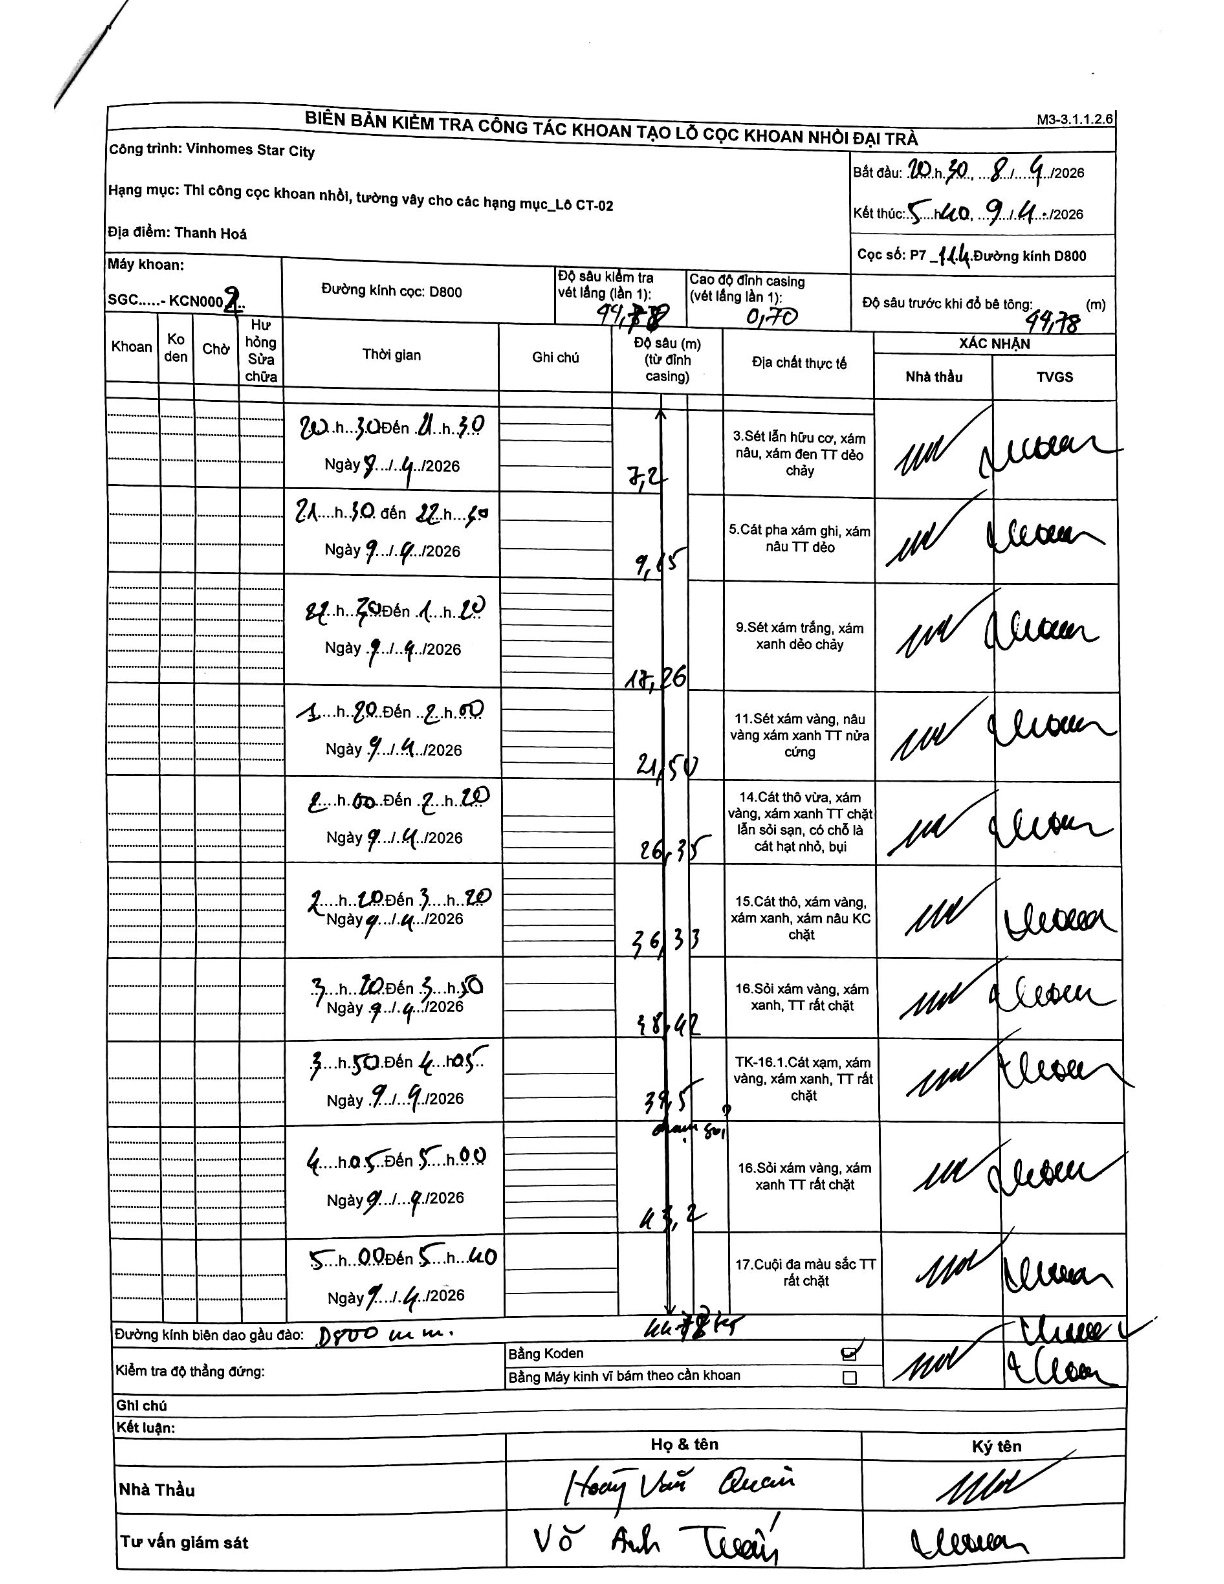 M3-3.1.1.2.6
BIÊN BẢN KIỂM TRA CÔNG TÁC KHOAN TẠO LỖ CỌC KHOAN NHỒI ĐẠI TRÀ
Công trình: Vinhomes Star City
Hạng mục: Thi công cọc khoan nhồi, tường vây cho các hạng mục_Lô CT-02
Địa điểm: Thanh Hoá
Bắt đầu: 20.h.30, ...8../....4../2026
Kết thúc: 5...h40, ...9../.4..../2026
Cọc số: P7_114.Đường kính D800
Máy khoan:
SGC.....- KCN0002..
Đường kính cọc: D800
Độ sâu kiểm tra
vét lắng (lần 1):
44,78
Cao độ đỉnh casing
(vét lắng lần 1):
0,70
Độ sâu trước khi đổ bê tông: (m)
44,78
Khoan
Ko
den
Chờ
Hư
hỏng
Sửa
chữa
Thời gian
Ghi chú
Độ sâu (m)
(từ đỉnh
casing)
Địa chất thực tế
XÁC NHẬN
Nhà thầu
TVGS
20..h...30Đến .21..h.30
Ngày 8.../.4../2026
7,2
3.Sét lẫn hữu cơ, xám
nâu, xám đen TT dẻo
chảy
21....h.30. đến 22.h...
Ngày 9.../.4../2026
9,15
5.Cát pha xám ghi, xám
nâu TT dẻo
22..h..Đến .1...h.20
Ngày 9.../..4../2026
17,26
9.Sét xám trắng, xám
xanh dẻo chảy
1....h..20.Đến ..2..h.00
Ngày .9.../..4../2026
21,50
11.Sét xám vàng, nâu
vàng xám xanh TT nửa
cứng
2...h.00.Đến .2..h..20
Ngày 9.../..4../2026
26,35
14.Cát thô vừa, xám
vàng, xám xanh TT chặt
lẫn sỏi sạn, có chỗ là
cát hạt nhỏ, bụi
2....h...20.Đến 3....h..20
Ngày 9.../.4.../2026
36,33
15.Cát thô, xám vàng,
xám xanh, xám nâu KC
chặt
3....h..20.Đến .3...h.50
Ngày .9.../.4.../2026
38,42
16.Sỏi xám vàng, xám
xanh, TT rất chặt
3...h.50.Đến 4...h05..
Ngày .9.../...4./2026
39,5
TK-16.1.Cát xạm, xám
vàng, xám xanh, TT rất
chặt
4....h.05..Đến 5....h.00
Ngày 9.../...4./2026
43,2
16.Sỏi xám vàng, xám
xanh TT rất chặt
5...h..00Đến 5....h...40
Ngày 9.../..4../2026
44,78
17.Cuội đa màu sắc TT
rất chặt
Đường kính biên dao gầu đào: D800 mm.
Kiểm tra độ thẳng đứng:
Bằng Koden
Bằng Máy kinh vĩ bám theo cần khoan
Ghi chú
Kết luận:
Họ & tên
Ký tên
Nhà Thầu
Hoàng Văn Quan
Tư vấn giám sát
Võ Anh Tuấn